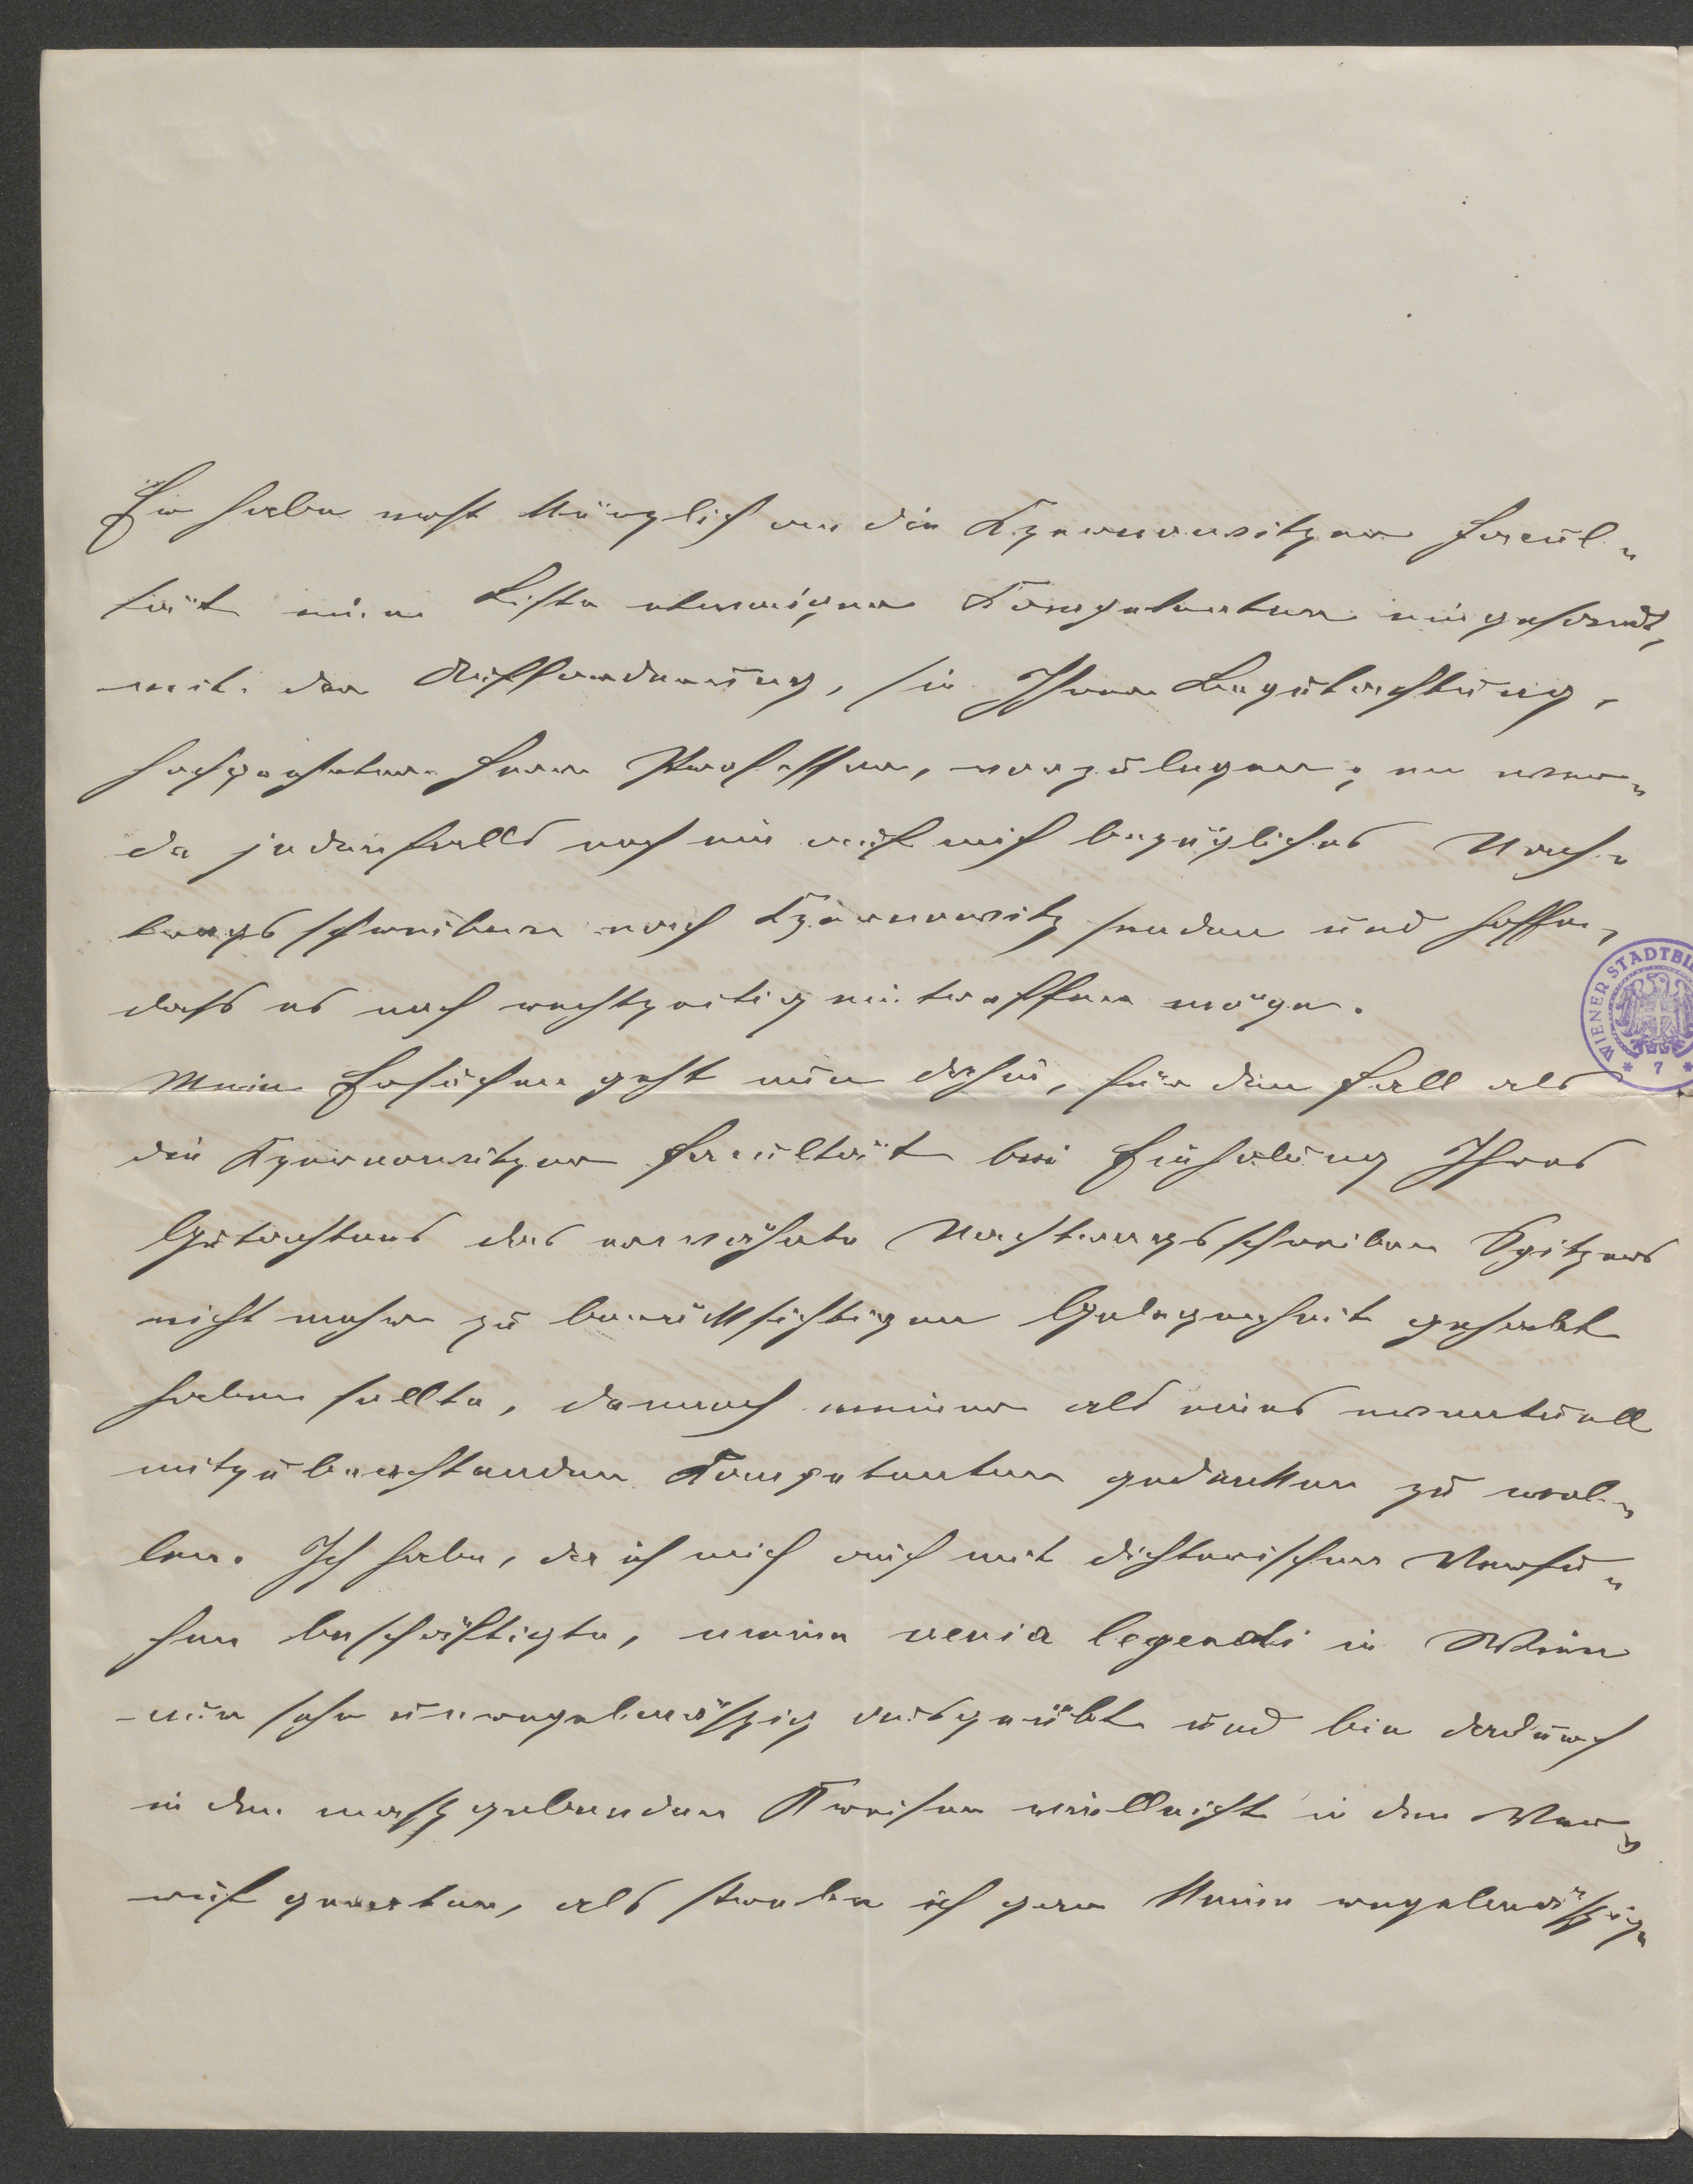 Er habe erst kürzlich an die Czernowitzer Facul-
tät eine Liste etwaiger Competenten eingesandt,
mit der Aufforderung, sie Ihrer Begutachtung,
hochgeehrter Herr Professor, vorzulegen; er wer-
de jedenfalls noch ein auf mich bezügliches Nach-
tragsschreiben nach Czernowitz senden und hoffe,
dass es noch rechtzeitig eintreffen möge.
Mein Ersuchen geht nun dahin, für den Fall als
die Czernowitzer Facultät bei Einholung Ihres
Gutachtens das erwähnte Nachtragsschreiben Spitzers
nicht mehr zu berücksichtigen Gelegenheit gehabt
haben sollte, dennoch meiner als eines eventuell
mitzubeachtenden Competenten gedenken zu wol-
len. Ich habe, da ich mich auch mit dichterischen Versu-
chen beschäftigte, meine venia legendi in Wien
nur sehr unregelmäßig ausgeübt und bin dadurch
in den maßgebenden Kreisen vielleicht in den Ver-
ruf geraten, als strebe ich gar keine regelmäßige
WIENER STADTBI
7